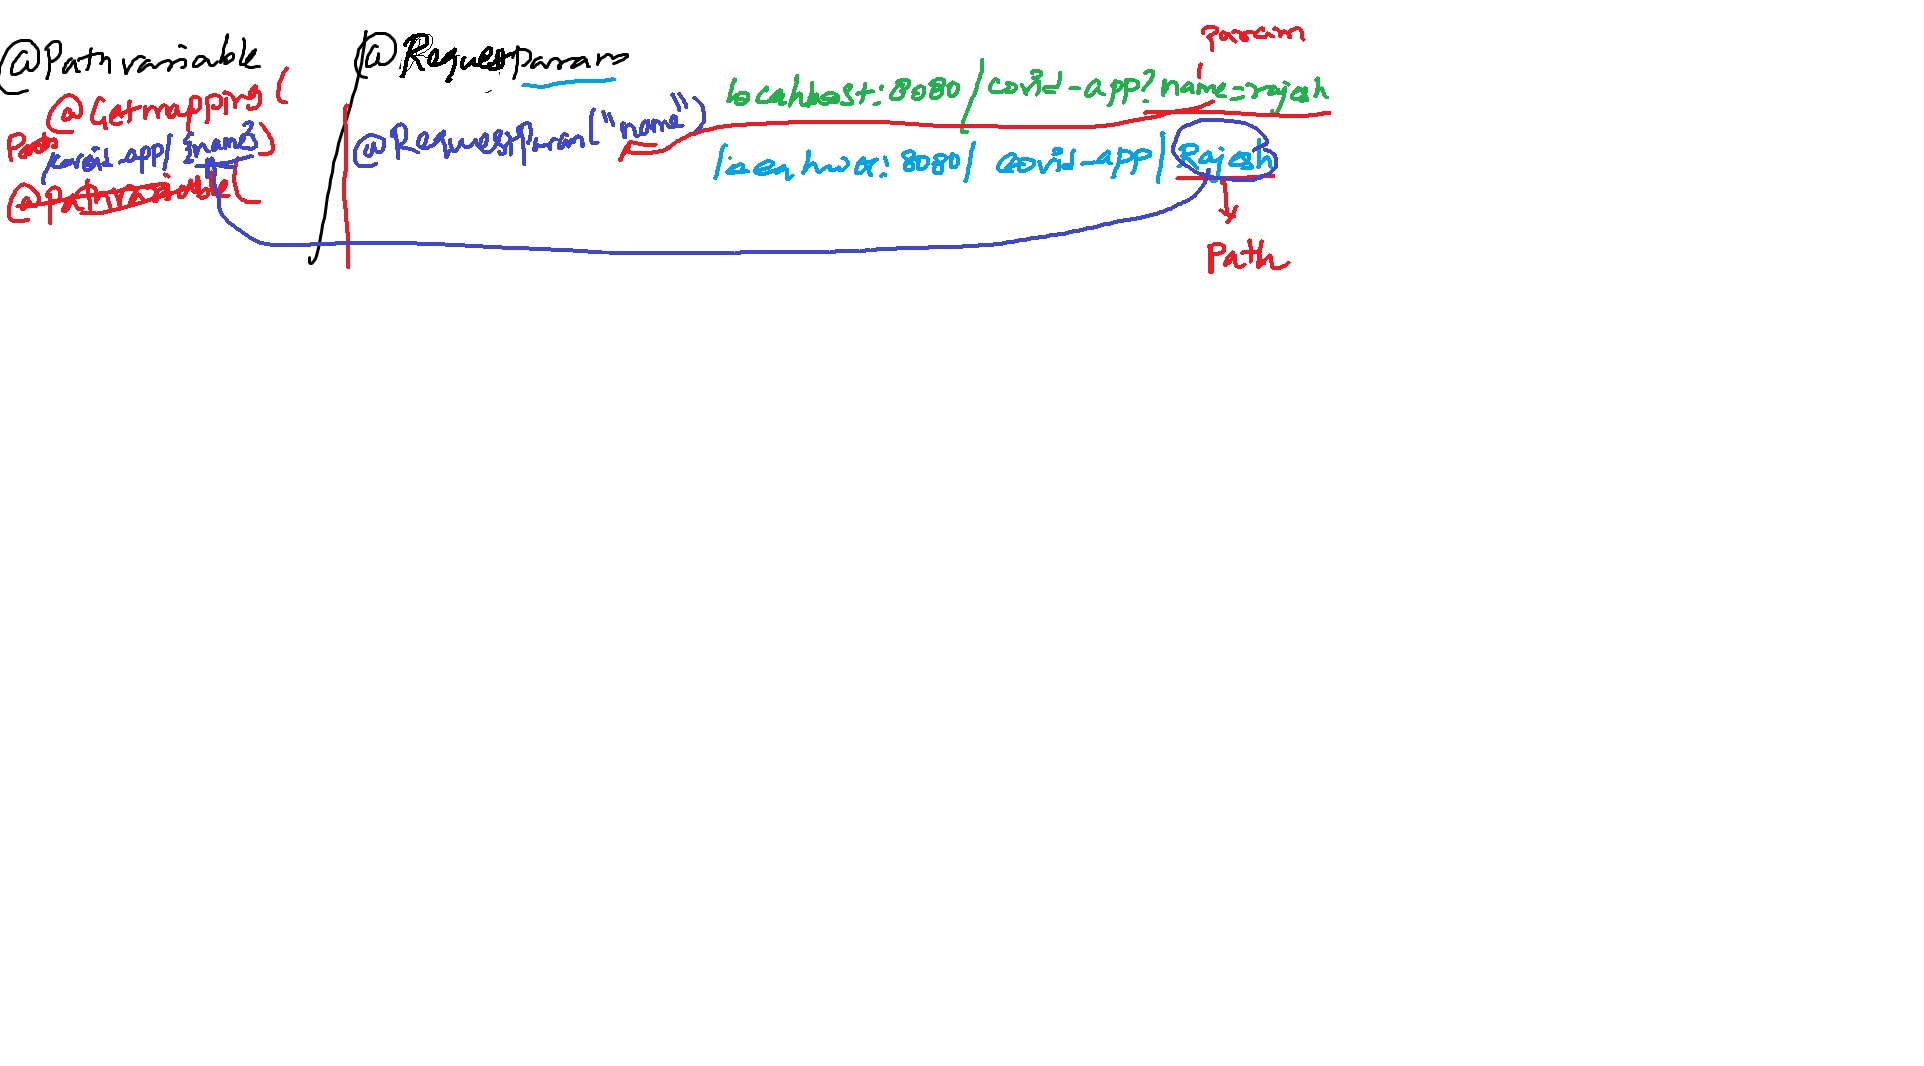 @Pathvariable
@Getmapping (
Path
covid-app/ {name})
@Pathvariable(
@Requestparam
@RequestParam("name")
param
localhost:8080/covid-app?name=rajesh
8080/ covid-app/Rajesh
Path